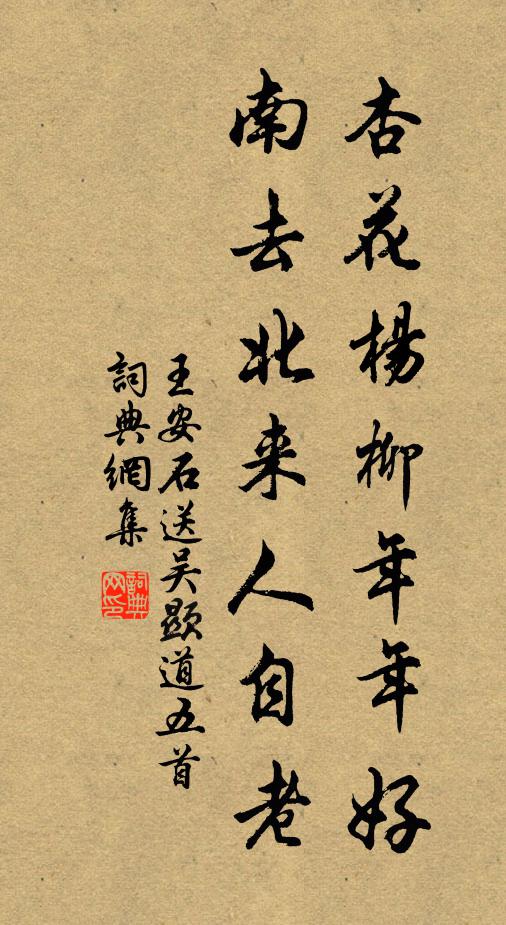 杏花楊柳年年好
南去北来人自老
王安石送吴顯道五首
詞典網集
詞典网印